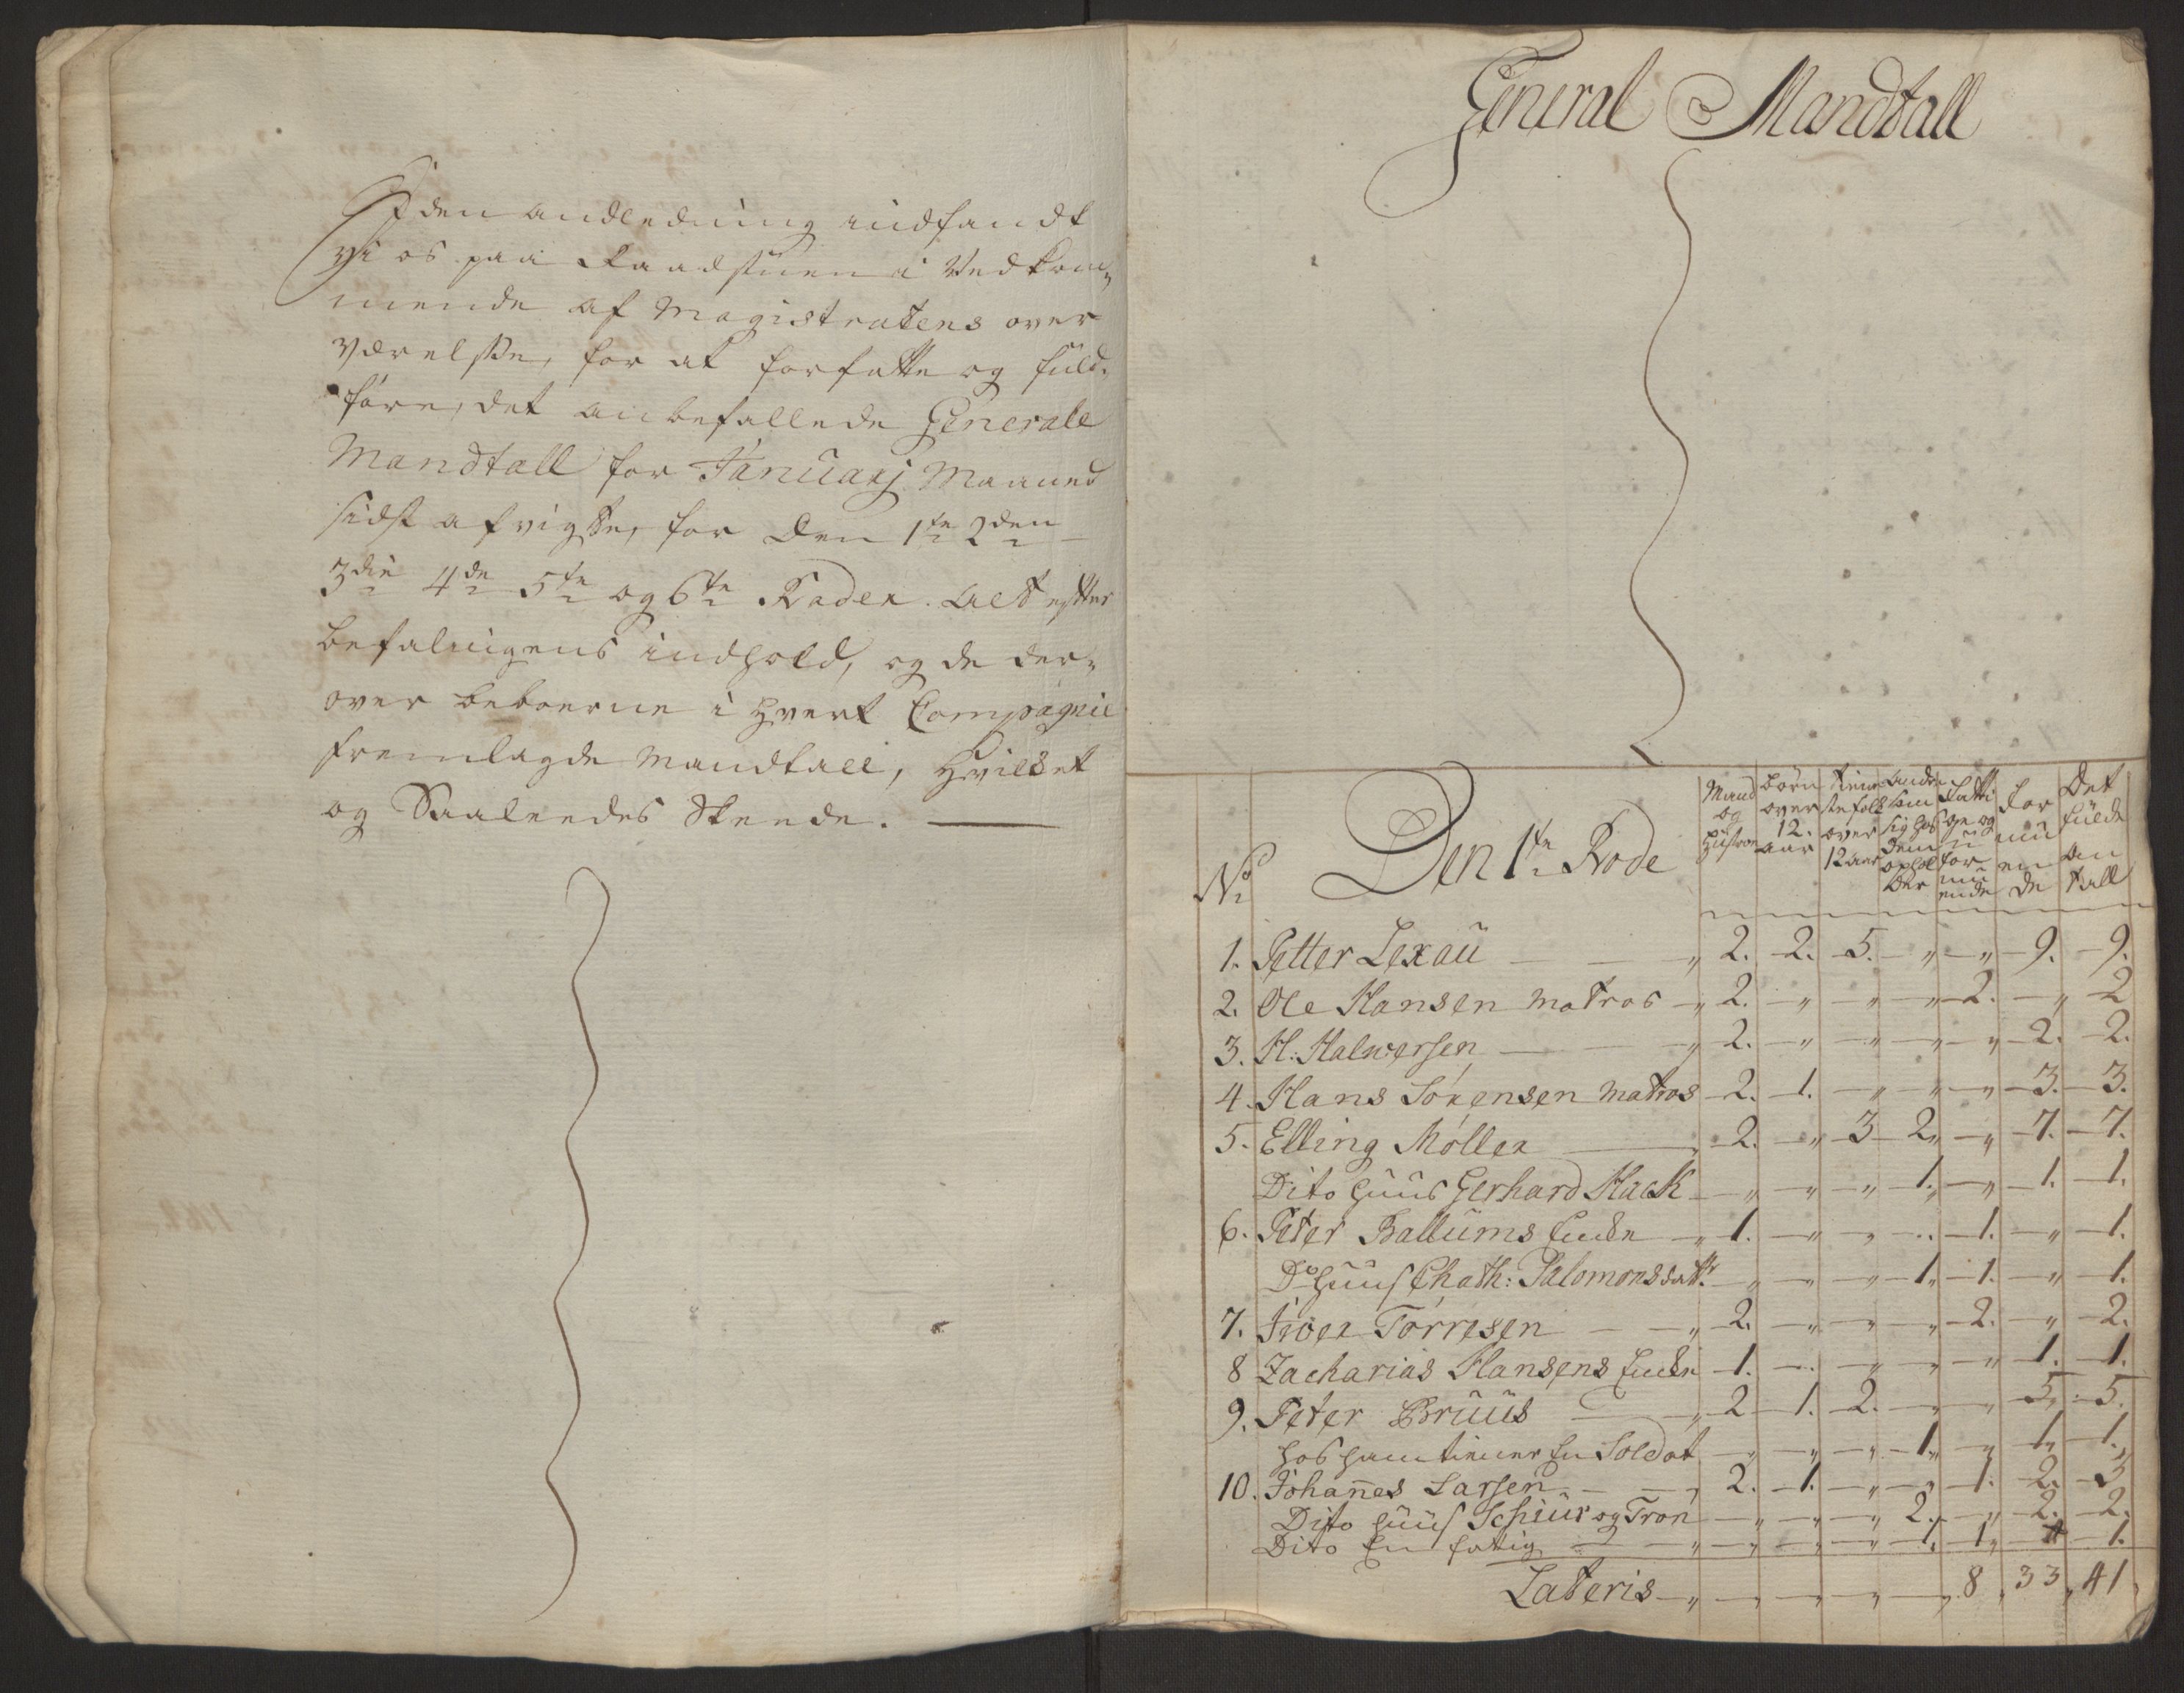 I den andledning indfandt
vi os paa Raadstuen i Vedkom„
mende af Magistratens over
værelsse, for at forfatte og fuld„
føre, det anbefallede Generale
Mandtall for Januarj Maaned
sidst afvigte, for Den 1te 2den
3die 4de 5te og 6te Roder. alt efter
befalningens indhold, og de der„
over beboerne i hvert Compagnie
fremlagde Mandtall, hvilket
og Saaleedes Skeede.
General Mandtall
No
Den 1te Rode
Mand og Hustroe
børn over 12. aar
tieneste folk over 12 aar
andre som sig hos dem ophol der
fatti ge og u for mu ende
for mu en de
Det fulde an tall
1. Petter Lexau — — „ 2. 2. 5. „ „ 9. 9.
2. Ole Hansen Matros „ 2. „ „ „ 2. „ 2
3. H: Halwersen — — „ 2. „ „ „ „ 2. 2.
4. Hans Sørensen Matros 2. 1. „ „ „ 3. 3.
5. Elling Møller — „ 2. „ 3 2„ „ 7. 7.
Dito huus Gerhard Hack „ „ „ 1. „ 1. 1.
6. Peter Ballums Encke „ 1. „ „ „ 1. „ 1.
Do huus Chath: Salomonsdattr „ „ „ 1„ 1. „ 1.
7. Iver Torresen — „ 2. „ „ „ 2. „ 2.
8 Zacharias Hansens Encke 1. „ „ „ „ 1. 1.
9. Peter Bruus — „ 2 1. 2. „ „ 5„ 5.
hos ham tiener En Soldat „ „ „ 1„ „ 1„ 1„
10. Johannes Larsen — „ 2. 1. „ „ 1. 2. 3
Dito huus og Tron „ „ „ 2. „ 2. 2.
Dito En fattig — „ „ „ „ 1. 1„ 1.
Lateris „ „ „ „ „ 8 „ 33 „ 41